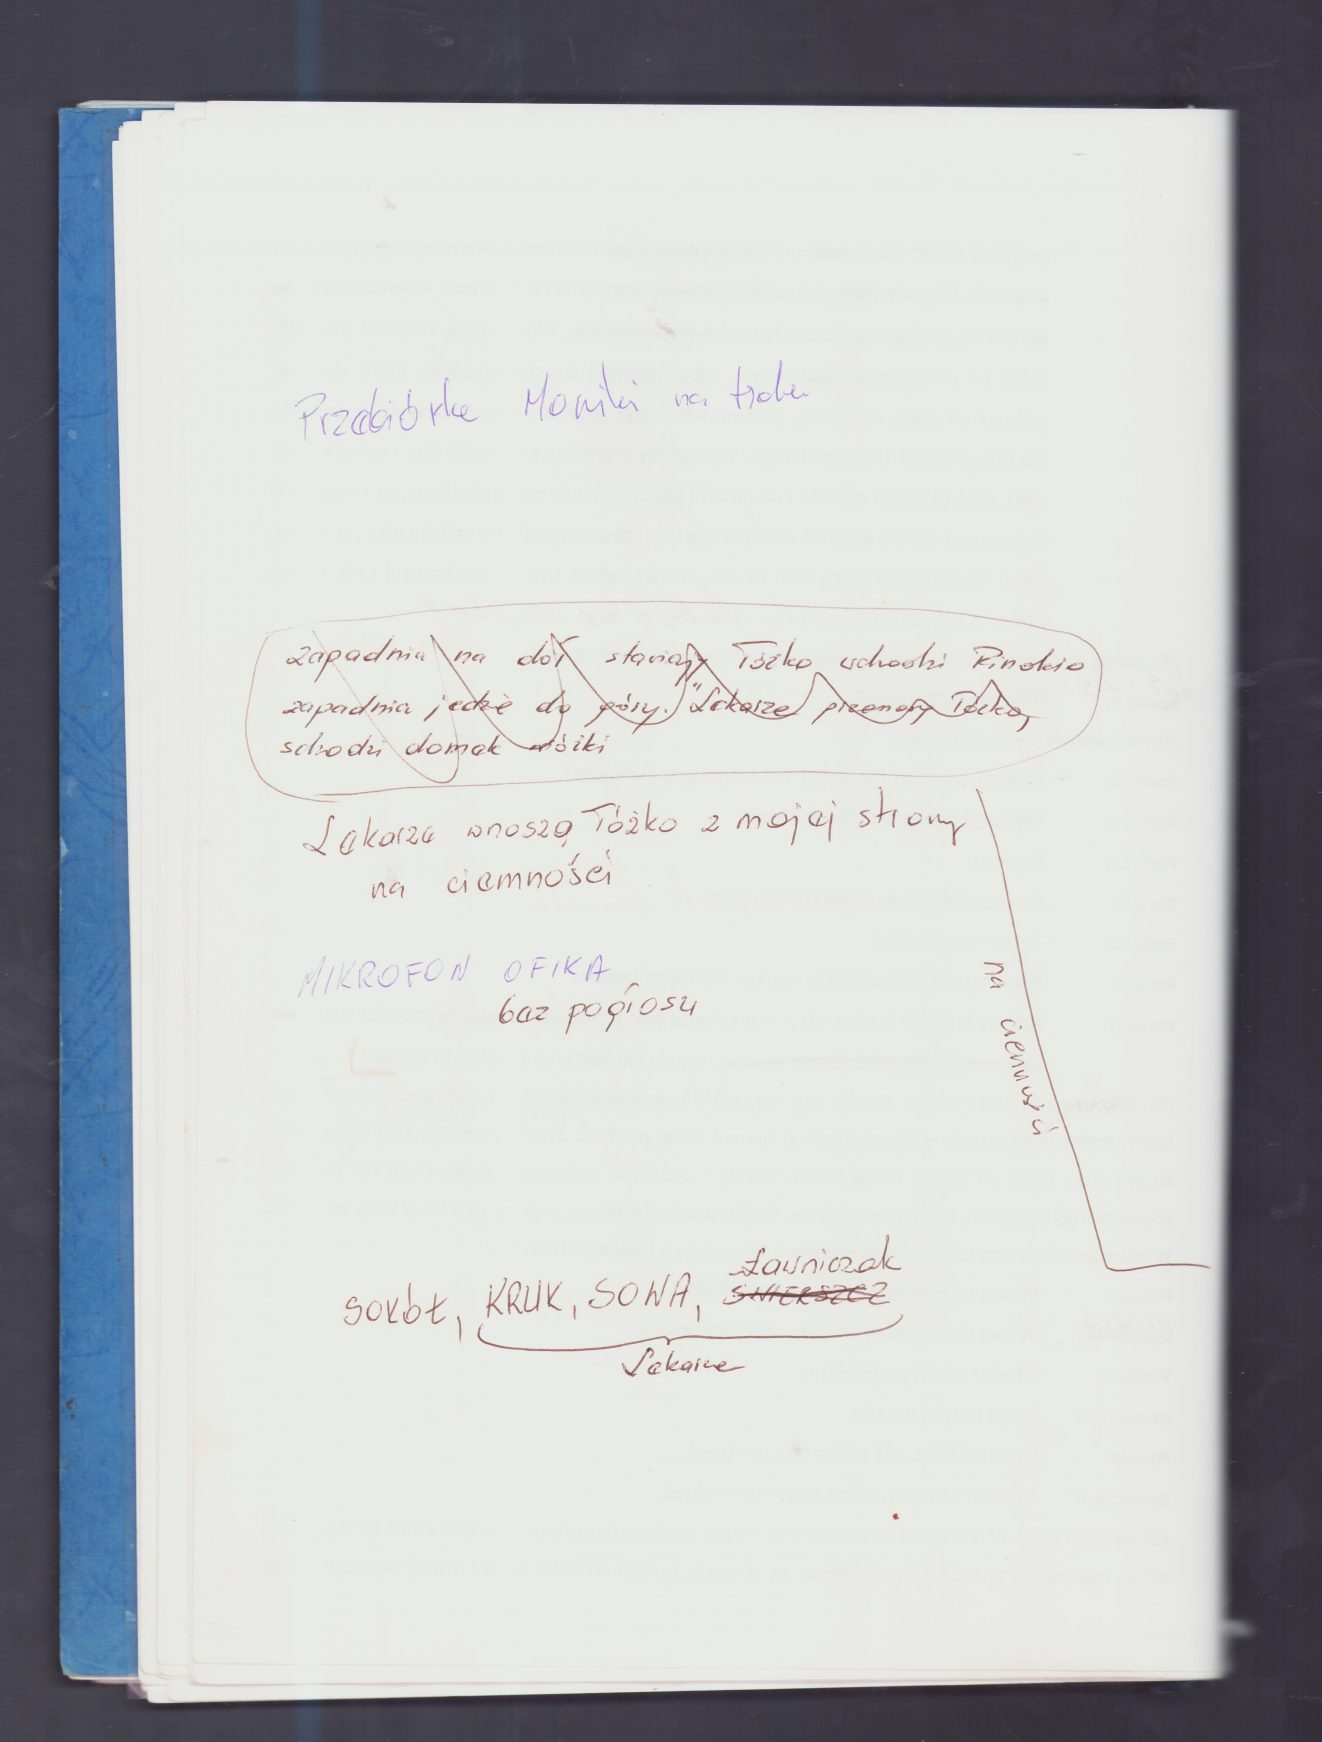 Przebiórka Moniki na
zapadnia na dół stawiają łóżko wchodzi Pinokio
zapadnia jedzie do góry. Lekarze przenoszą łóżko,
schodzi domek wróżki
Lekarze wnoszą łóżko z mojej strony
na ciemności
na ciemność
MIKROFON OFIKA
bez pogłosu
Ławniczak
SOKÓŁ, KRUK, SOWA, ŚWIERSZCZ
Lekarze